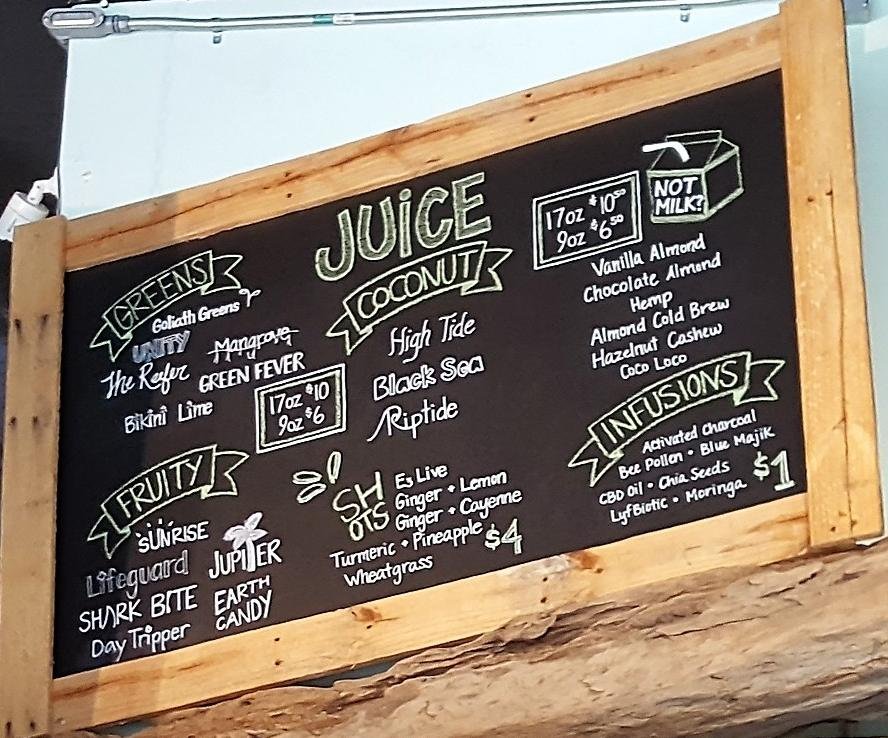 JUiCE
GREENS
Goliath Greens
UNITY
Mangrove
The Reefer
GREEN FEVER
Bikini Lime
17oz $10
9oz $6
FRUITY
SUNRISE
Lifeguard
JUPITER
SHARK BITE
EARTH
CANDY
Day Tripper
COCONUT
High Tide
Black Sea
Riptide
SH
OTS
E3 Live
Ginger + Lemon
Ginger + Cayenne
Turmeric + Pineapple
Wheatgrass
$4
17oz $10.50
9oz $6.50
NOT
MILK?
Vanilla Almond
Chocolate Almond
Hemp
Almond Cold Brew
Hazelnut Cashew
Coco Loco
INFUSIONS
Activated Charcoal
Bee Pollen • Blue Majik
CBD Oil • Chia Seeds
LyfBiotic • Moringa
$1